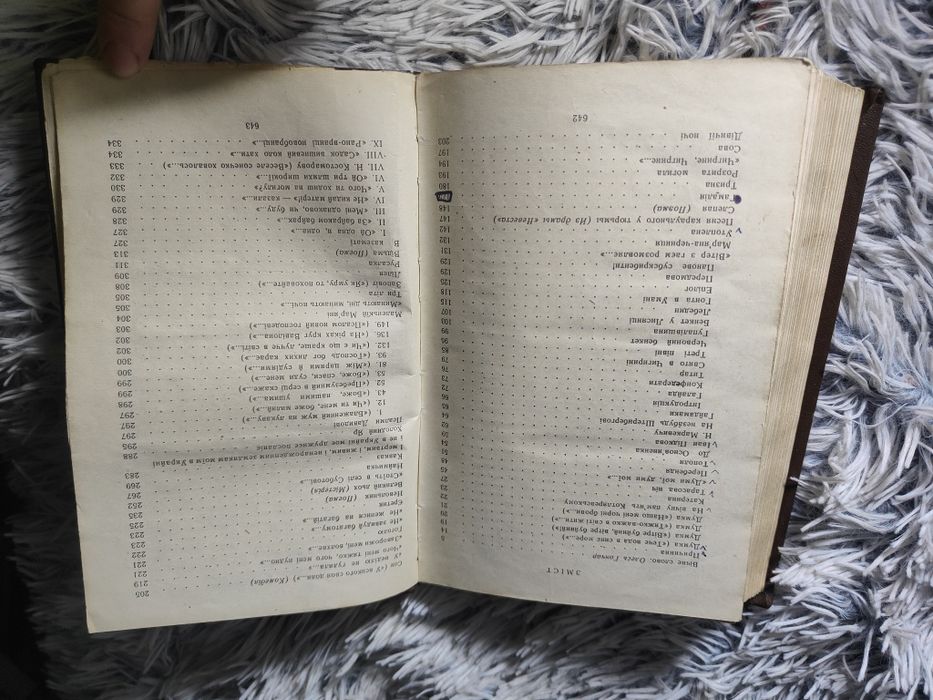 ЗМІСТ
Вічне слово. Олесь Гончар 3
Причинна
Думка («Тече вода в синє море...») 14
Думка («Вітре буйний, вітре буйний!») 19
Думка («Тяжко-важко в світі жити...») 20
Думка («Нащо мені чорні брови...») 21
На вічну пам'ять Котляревському 23
Катерина 25
Тарасова ніч
«Думи мої, думи мої...» 45
Перебендя 48
Тополя 51
До Основ'яненка
Іван Підкова 59
Н. Маркевичу 62
На незабудь Штернбергові 64
Гайдамаки 65
Інтродукція 66
Галайда 72
Конфедерати 73
Титар 76
Свято в Чигирині 79
Треті півні 85
Червоний бенкет 93
Гупалівщина 99
Бенкет у Лисянці 103
Лебедин 107
Гонта в Умані 115
Епілог 118
Передмова 129
Панове субскрибенти! 129
«Вітер з гаєм розмовляє...» 131
Мар'яна-черниця 132
Утоплена 142
Песня караульного у тюрьмы (Из драмы «Невеста») 147
Слепая (Поэма) 148
Гамалія
Тризна 180
Розрита могила 193
«Чигрине, Чигрине...» 194
Сова 197
Дівичії ночі 203
642
Сон («У всякого своя доля...») (Комедія) 205
«У неділю не гуляла...» 219
«Чого мені тяжко, чого мені нудно...» 221
«Заворожи мені, волхве... 221
Гоголю 222
«Не завидуй багатому 223
«Не женися на багатій 225
Єретик 235
Невольник (Поема) 252
Великий льох (Містерія) 267
«Стоїть в селі Суботові...» 269
Наймичка 283
Кавказ
І мертвим, і живим, і ненарожденним землякам моїм в Украйні
і не в Украйні моє дружнєє посланіє 288
Холодний Яр 295
Псалми Давидові 297
1. «Блаженний муж на лукаву...») 297
12. («Чи ти мене, боже милий...») 298
43. («Боже, нашими ушима...») 299
52. («Пребезумний в серці скаже...») 299
53. («Боже, спаси, суди мене...») 300
81. («Між царями й судіями...») 300
93. («Господь бог лихих карає...») 300
132. («Чи є що краще, лучче в світі...») 302
136. («На ріках круг Вавілона...») 302
149. («Псалом новий господеві...») 303
Маленькій Мар'яні 304
«Минають дні, минають ночі... 305
Три літа 305
Заповіт («Як умру, то поховайте...») 308
Лілея 309
Русалка 311
Відьма (Поема) 313
В казематі 327
I. «Ой одна я, одна...» 327
II. «За байраком байрак...» 328
III. «Мені однаково, чи буду...» 329
IV. «Не кидай матері! — казали...» 329
V. «Чого ти ходиш на могилу? 330
VI. «Ой три шляхи широкії...» 332
VII. Н. Костомарову («Веселе сонечко ховалось...») 333
VIII. «Садок вишневий коло хати...» 334
IX. «Рано-вранці новобранці...» 334
643